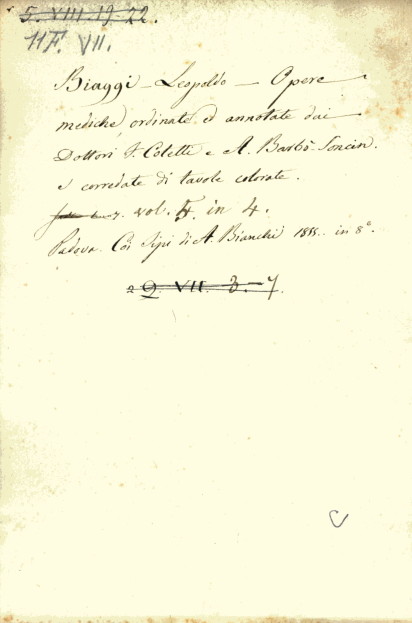 5. VIII. 19-22.
11F. VII.
Biaggi - Leopoldo - Opere
mediche, ordinate ed annotate dai
Dottori F. Coletti e A. Barbò-Soncin.
e corredate di tavole colorate.
vol. 5. in 4.
Padova. Coi Tipi di A. Bianchi 1855. in 8°.
2 Q. VII. 3.-7.
C